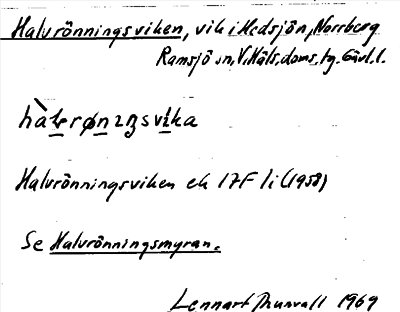 Halvrönningsviken, vik i Hedsjön, Norrberg
Ramsjö sn, V. Häls. doms. tg. Gävl. l.
hàlvrønɩŋsvika
Halvrönningsviken ek 17F 1i (1958)
Se Halvrönningsmyran.
Lennart Thunvall 1969